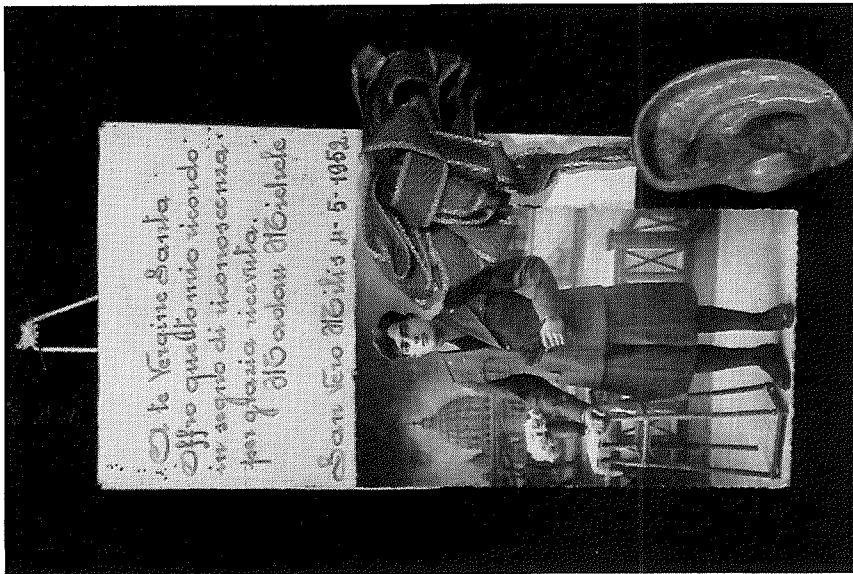 A te Vergine Santa
Offro questo mio ricordo
in segno di riconoscenza
per grazia ricevuta.
Michele
San Vero Milis 5-1952